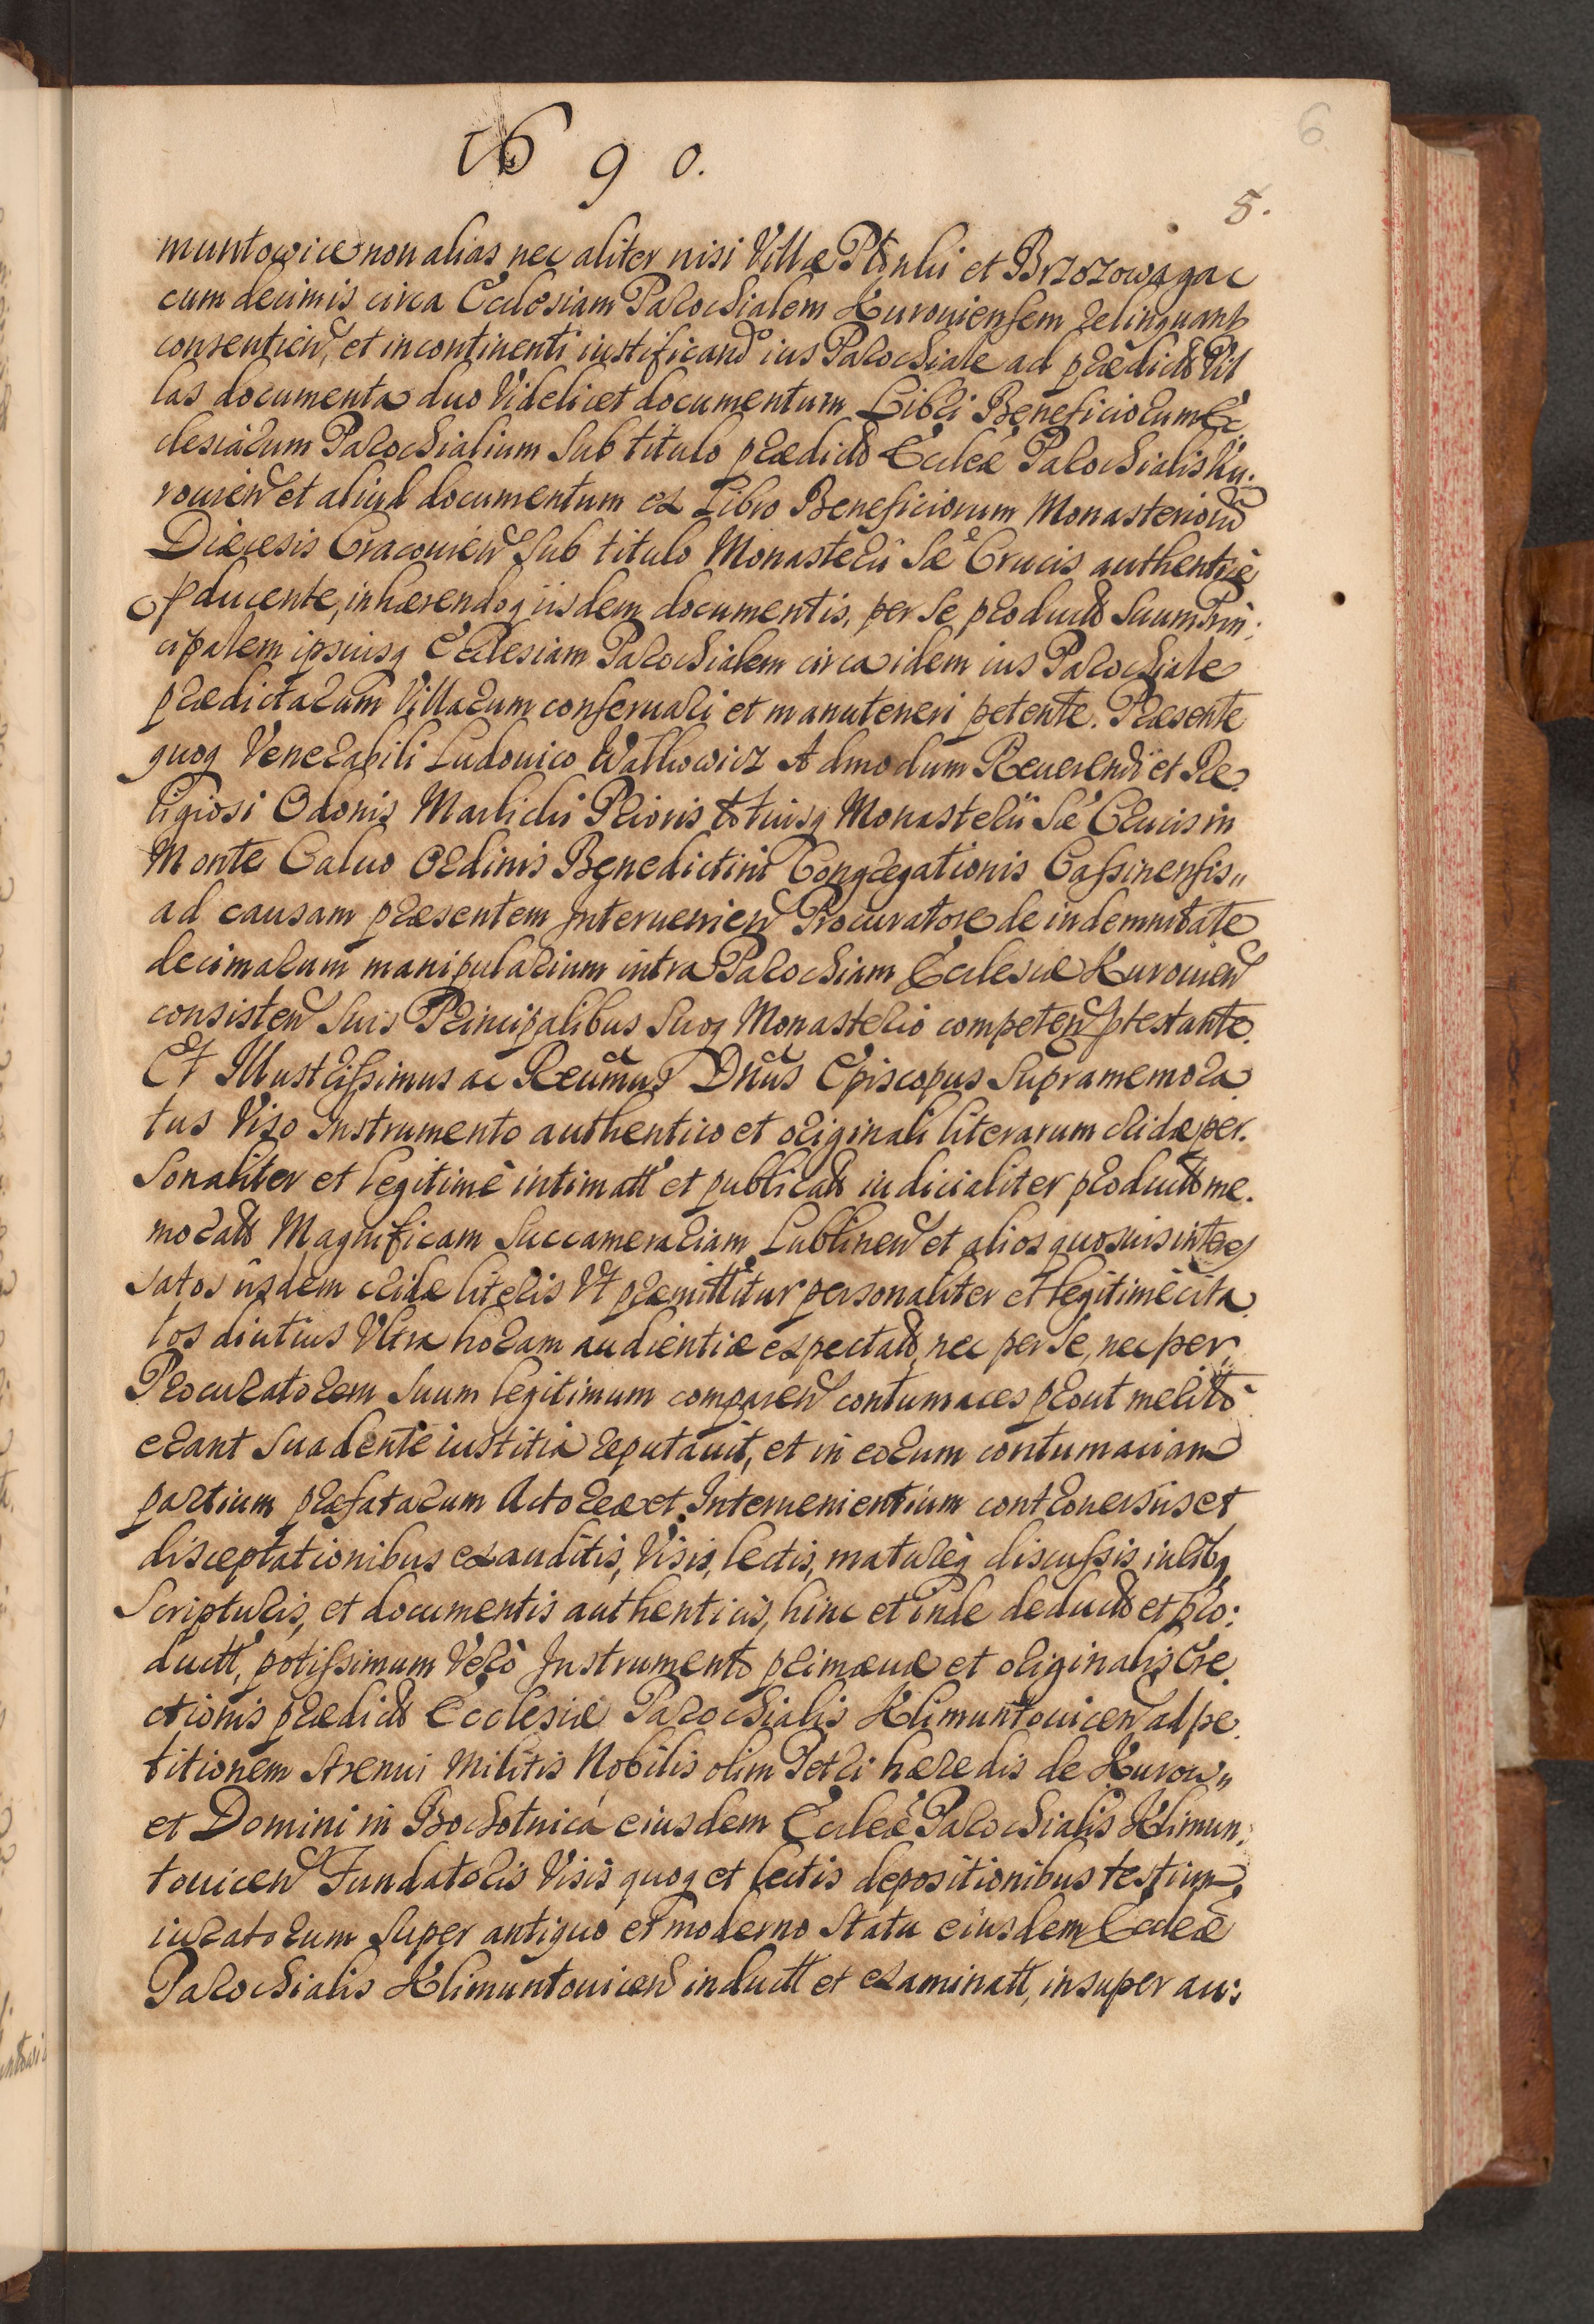 6
1690.
5.
muntowice non alias nec aliter nisi Villæ Płonki et Brzozowagac
cum decimis circa Ecclesiam Parochialem Kurouiensem relinquant
consentien, et incontinenti iustificand ius Parochiale ad prædict Vil
las documenta duo Videlicet documentum Libri Beneficiorum Ec
clesiarum Parochialium sub titulo prædict Eccleæ Parochialis Ku:
rouien et aliud documentum ex Libro Beneficiorum Monasterioru
Diæcesis Cracouien sub titulo Monasterii Sæ Crucis authenticè
pducente, inhærendoq iisdem documentis, per se product suum Prin:
cipalem ipsiusq Ecclesiam Parochialem circa idem ius Parochiale
prædictarum Villarum conseruari et manuteneri petente. Præsente
quoq Venerabili Ludouico Walkowicz Admodum Reuerendi et Re
ligiosi Odonis Marlicki Prioris totiusq Monasterii Sæ Crucis in
Monte Caluo Ordinis Benedictini Congregationis Cassinensis
ad causam præsentem Interuenien Procuratore de indemnitate
decimarum manipularium intra Parochiam Ecclesiæ Kurouien
consisten suis Principalibus suoq Monasterio competen ptestante.
Et Illustrissimus ac Reumus Dnus Episcopus supramemora
tus Viso Instrumento authentico et originali literarum cridæ per.
sonaliter et legitimè intimatt et publicatt iudicialiter product me.
moratt Magnificam Succamerariam Lublinen et alios quosuis intere
satos iisdem cridæ literis Vt præmittitur personaliter et legitimè cita
tos diutius Vltra horam audientiæ expectatt, nec per se, nec per
Procuratorem suum legitimum comparen contumaces prout meritò
erant suadente iustitia reputauit, et in eorum contumaciam
partium præfatarum Actoreæ et Interuenientium controuersiis et
disceptationibus exauditis, Visis, lectis, matureq discussis iuribq
Scripturis, et documentis authenticis, hinc et inde deductt et pro:
ductt, potissimum Verò Instrumento primæuæ et originalis Ere
ctionis prædict Ecclesiæ Parochialis Klimuntouicen ad pe
titionem strenui Militis Nobilis olim Petri hæredis de Kurow
et Domini in Bochotnica eiusdem Eccleæ Parochialis Klimun:
touicen Fundatoris Visis quoq et lectis depositionibus testium
iuratorum super antiquo et moderno statu eiusdem Eccleæ
Parochialis Klimuntouicen inductt et examinatt, insuper au: